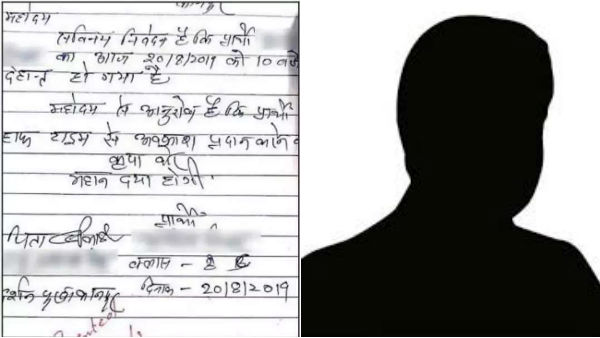 महोदय
सविनय निवेदन है कि प्राथी
का आज 20/8/2019 को 10 बजे
देहान्त हो गया है
महोदय से अनुरोध है कि प्राथी
हाफ टाइम से अवकाश प्रदान करने
कृपा करें
महान दया होगी
प्राथी
पिता
क्लास - 8
दिनांक - 20/8/2019